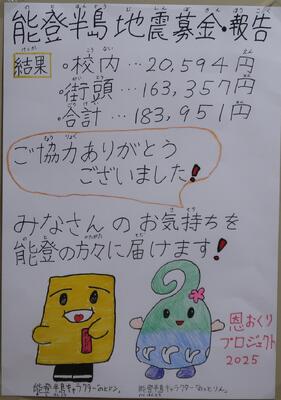 能登半島地震募金・報告
結果
・校内…20,594円
・街頭…163,357円
・合計…183,951円
ご協力ありがとう
ございました!
みなさんのお気持ちを
能登の方々に届けます!
恩おくり
プロジェクト
2025
能登半島キャラクターのとドン。
能登半島キャラクターのとりん。